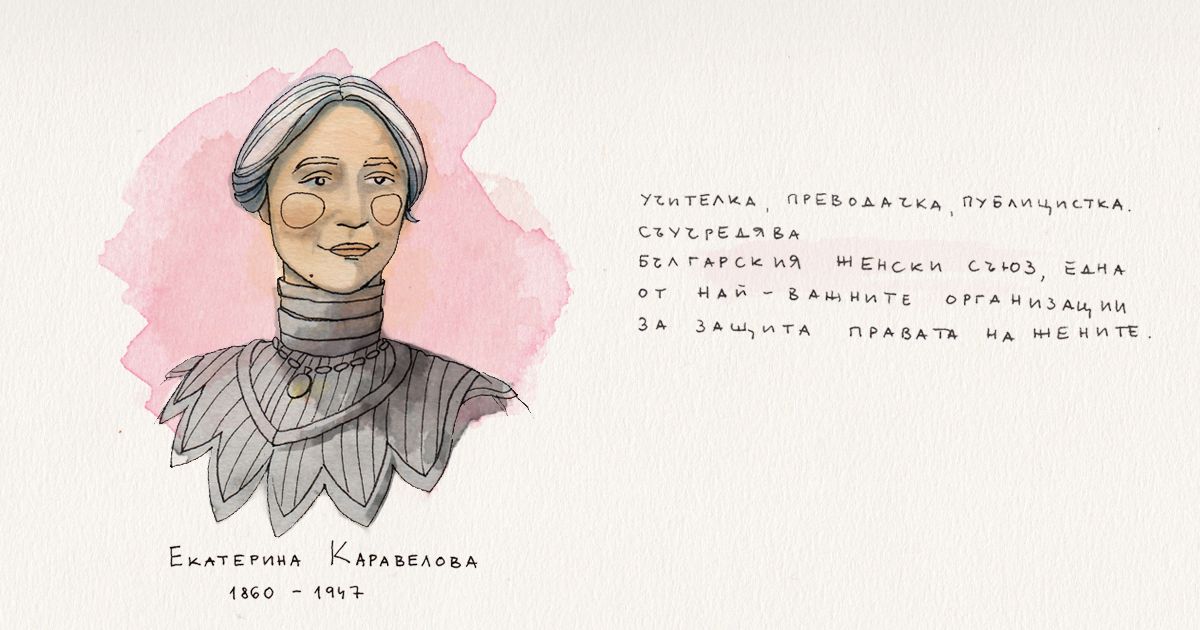 Учителка, преводачка, публицистка.
Съучредява
Български женски съюз, една
от най - важните организации
за защита правата на жените.
Екатерина Каравелова
1860 - 1947